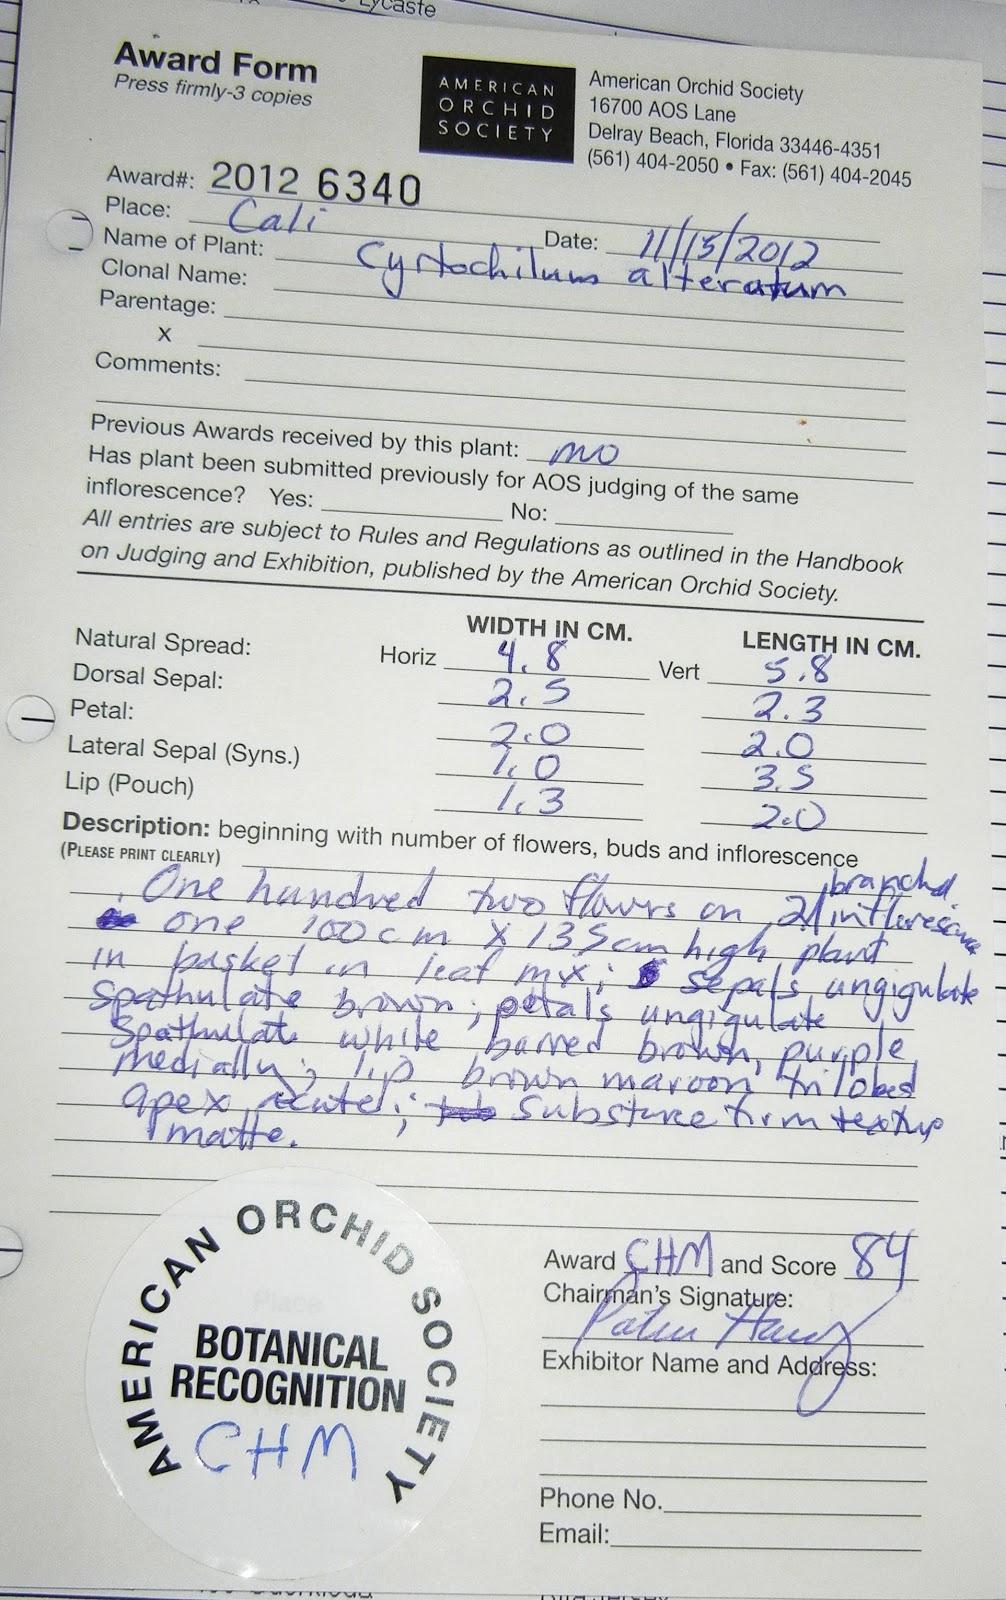 Lycaste
Award Form
Press firmly-3 copies
AMERICAN
ORCHID
SOCIETY
American Orchid Society
16700 AOS Lane
Delray Beach, Florida 33446-4351
(561) 404-2050 • Fax: (561) 404-2045
Award#: 2012 6340
Place: Cali Date: 11/15/2012
Name of Plant: Cyrtochilum alteratum
Clonal Name:
Parentage:
X
Comments:
Previous Awards received by this plant: no
Has plant been submitted previously for AOS judging of the same
inflorescence? Yes: No:
All entries are subject to Rules and Regulations as outlined in the Handbook
on Judging and Exhibition, published by the American Orchid Society.
WIDTH IN CM. LENGTH IN CM.
Natural Spread: Horiz 4.8 Vert 5.8
Dorsal Sepal: 2.5 2.3
Petal: 2.0 2.0
Lateral Sepal (Syns.) 1.0 3.5
Lip (Pouch) 1.3 2.0
Description: beginning with number of flowers, buds and inflorescence
(PLEASE PRINT CLEARLY)
One hundred two flowers on 2 branched inflorescence
one 100 cm X 135 cm high plant
in basket in leaf mix; sepals ungigulate
spathulate brown; petals ungigulate
spathulate white barred brown, purple
medially; lip brown maroon trilobed
apex acute; substance firm texture
matte.
AMERICAN ORCHID SOCIETY
BOTANICAL
RECOGNITION
CHM
Award CHM and Score 84
Chairman's Signature:
Exhibitor Name and Address:
Phone No.
Email: